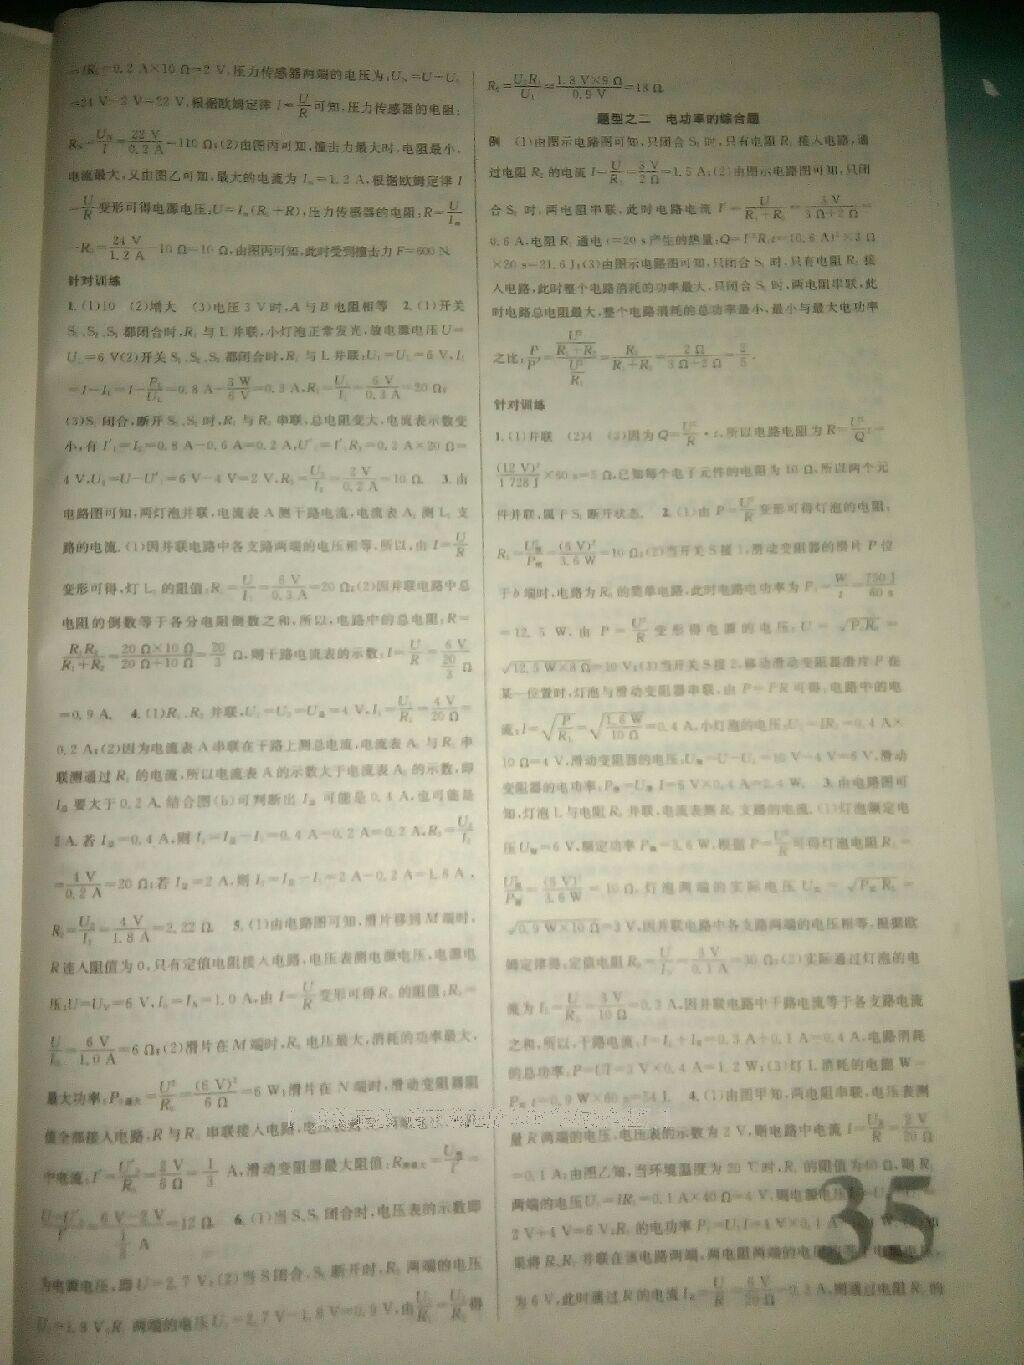 =IR₀=0.2 A×10 Ω=2 V,压力传感器两端的电压为:U_N=U-U₀
=24 V-2 V=22 V,根据欧姆定律 I=U/R 可知,压力传感器的电阻:
R_N=U_N/I=22 V/0.2 A=110 Ω;(2)由图丙可知,撞击力最大时,电阻最小,
电流最大,又由图乙可知,最大的电流为 Iₘ=1.2 A,根据欧姆定律 I
=U/R 变形可得电源电压,U=Iₘ(R₀+R),压力传感器的电阻:R=U/Iₘ
-R₀=24 V/1.2 A-10 Ω=10 Ω,由图丙可知,此时受到撞击力 F=600 N
针对训练
1.(1)10 (2)增大 (3)电压 3 V 时,A 与 B 电阻相等 2.(1)开关
都闭合时,R₁ 与 L 并联,小灯泡正常发光,故电源电压 U=
U_L=6 V(2)开关 S₁、S₂、S₃ 都闭合时,R₁ 与 L 并联:U₁=U_L=6 V,I₁
=I-I_L=I-P_L/U_L=0.8 A-3 W/6 V=0.3 A,R₁=U₁/I₁=6 V/0.3 A=20 Ω;
闭合,断开 时,R₁ 与 R₂ 串联,总电阻变大,电流表示数变
小,有 I′₁=I₂=0.8 A-0.6 A=0.2 A,U′₁=I′₁R₁=0.2 A×20 Ω=
4 V,U₂=U-U′₁=6 V-4 V=2 V,R₂=U₂/I₂=2 V/0.2 A=10 Ω. 3.由
电路图可知,两灯泡并联,电流表 A 测干路电流,电流表 测 支
路的电流.(1)因并联电路中各支路两端的电压相等,所以,由 I=U/R
变形可得,灯 L₁ 的阻值:R₁=U/I₁=6 V/0.3 A=20 Ω;(2)因并联电路中总
电阻的倒数等于各分电阻倒数之和,所以,电路中的总电阻:R=
R₁R₂/(R₁+R₂)=20 Ω×10 Ω/(20 Ω+10 Ω)=20/3 Ω,则干路电流表的示数:I=U/R=6 V/(20/3 Ω)
=0.9 A. 4.(1)R₁、R₂ 并联,U₁=U₂=U总=4 V,I₁=U₁/R₁=4 V/20 Ω=
0.2 A;(2)因为电流表 A 串联在干路上测总电流,电流表 A₂ 与 R₂ 串
联测通过 R₂ 的电流,所以电流表 A 的示数大于电流表 A₂ 的示数,即
I总 要大于 0.2 A.结合图(b)可判断出 I总 可能是 0.4 A,也可能是
2 A.若 I总=0.4 A,则 I₂=I总-I₁=0.4 A-0.2 A=0.2 A,R₂=U₂/I₂
=4 V/0.2 A=20 Ω;若 I总=2 A,则 I₂=I总-I₁=2 A-0.2 A=1.8 A,
R₂=U₂/I₂=4 V/1.8 A=2.22 Ω. 5.(1)由电路图可知,滑片移到 M 端时,
R 连入阻值为 0,只有定值电阻接入电路,电压表测电源电压,电源电
压:U=U_V=6 V,I₀=I_A=1.0 A,由 I=U/R 变形可得 R₀ 的阻值:R₀=
U/I₀=6 V/1.0 A=6 Ω;(2)滑片在 M 端时,R₀ 电压最大,消耗的功率最大,
最大功率:P₀最大=U²/R₀=(6 V)²/6 Ω=6 W;滑片在 N 端时,滑动变阻器阻
值全部接入电路,R 与 R₀ 串联接入电路,
中电流:I′=U′₀/R₀=2 V/6 Ω=1/3 A,滑动变阻器最大阻值:R滑最大=U滑/I′=
(U-U′₀)/I′=(6 V-2 V)/(1/3 A)=12 Ω. 6.(1)当 闭合时,电压表的示数即
为电源电压,即 U=2.7 V;(2)当 S 闭合, 断开时, 两端的电压
U₁=1.8 V, 两端的电压 =2.7 V-1.8 V=0.9 V,由 得
R₂=U₂R₁/U₁=1.8 V×9 Ω/0.9 V=18 Ω
题型之二 电功率的综合题
例 (1)由图示电路图可知,只闭合 时,只有电阻 接入电路,通
过电阻 R₂ 的电流 I=U/R₂=3 V/2 Ω=1.5 A;(2)由图示电路图可知,只闭
合 时,两电阻串联,此时电路电流 I′=U/(R₁+R₂)=3 V/(3 Ω+2 Ω)=
0.6 A,电阻 R₁ 通电 t=20 s 产生的热量:Q=I′²R₁t=(0.6 A)²×3 Ω
×20 s=21.6 J;(3)由图示电路图可知,只闭合 时,只有电阻 R₂ 接
入电路,此时整个电路消耗的功率最大,只闭合 时,两电阻串联,此
时电路总电阻最大,整个电路消耗的总功率最小,最小与最大电功率
之比:P/P′=(U²/(R₁+R₂))/(U²/R₂)=R₂/(R₁+R₂)=2 Ω/(3 Ω+2 Ω)=2/5.
针对训练
1.(1)并联 (2)4 (3)因为 Q=U²/R·t,所以电路电阻为 R=U²/Q t=
(12 V)²/1 728 J×60 s=5 Ω,已知每个电子元件的电阻为 10 Ω,所以两个元
件并联,属于 断开状态. 2.(1)由 P=U²/R 变形可得灯泡的电阻:
R_L=U额²/P额=(6 V)²/3.6 W=10 Ω;(2)当开关 S 接 1,滑动变阻器的滑片 P 位
于 b 端时,电路为 R₀ 的简单电路,此时电路电功率为 =W/t=750 J/60 s
=12.5 W,由 P=U²/R 变形得电源的电压:U=√PR₀=
√12.5 W×8 Ω=10 V;(3)当开关 S 接 2,移动滑动变阻器滑片 P 在
某一位置时,灯泡与滑动变阻器串联,由 P=I²R 可得,电路中的电
流:I=√P/R_L=√1.6 W/10 Ω=0.4 A,小灯泡的电压:U_L=IR_L=0.4 A×
10 Ω=4 V,滑动变阻器的电压:U滑=U-U_L=10 V-4 V=6 V,滑动
变阻器的电功率,P滑=U滑 I=6 V×0.4 A=2.4 W. 3.由电路图可
知,灯泡 L 与电阻 R₀ 并联,电流表测 R₀ 支路的电流.(1)灯泡额定电
压 U额=6 V,额定功率 P额=3.6 W,根据 P=U²/R 可得灯泡电阻 R_L=
U额²/P额=(6 V)²/3.6 W=10 Ω,灯泡两端的实际电压 U实=√P实R_L=
√0.9 W×10 Ω=3 V,因并联电路中各支路两端的电压相等,根据欧
姆定律得,定值电阻 R₀=U/I₀=3 V/0.1 A=30 Ω;(2)实际通过灯泡的电
流为 I_L=U/R_L=3 V/10 Ω=0.3 A,因并联电路中干路电流等于各支路电流
之和,所以,干路电流:I=I_L+I₀=0.3 A+0.1 A=0.4 A,电路消耗
的总功率:P=UI=3 V×0.4 A=1.2 W;(3)灯 L 消耗的电能 W=
P实 t=0.9 W×60 s=54 J. 4.(1)由图甲知,两电阻串联,电压表测
量 R 两端的电压,电压表的示数为 2 V,则电路中电流 I=U_R/R=2 V/20 Ω
=0.1 A;由图乙知,当环境温度为 20 ℃时,R₁ 的阻值为 40 Ω,则 R₁
两端的电压 U₁=IR₁=0.1 A×40 Ω=4 V,则电源电压
2 V+4 V=6 V,R₁ 的电功率 P₁=U₁I=4 V×0.1 A
果将 R、R₁ 并联在该电路两端,两电阻两端的电压
为 6 V,此时通过 R 的电流 I_R=U/R=6 V/20 Ω=0.3 A,则通过电阻 R₁ 的
35